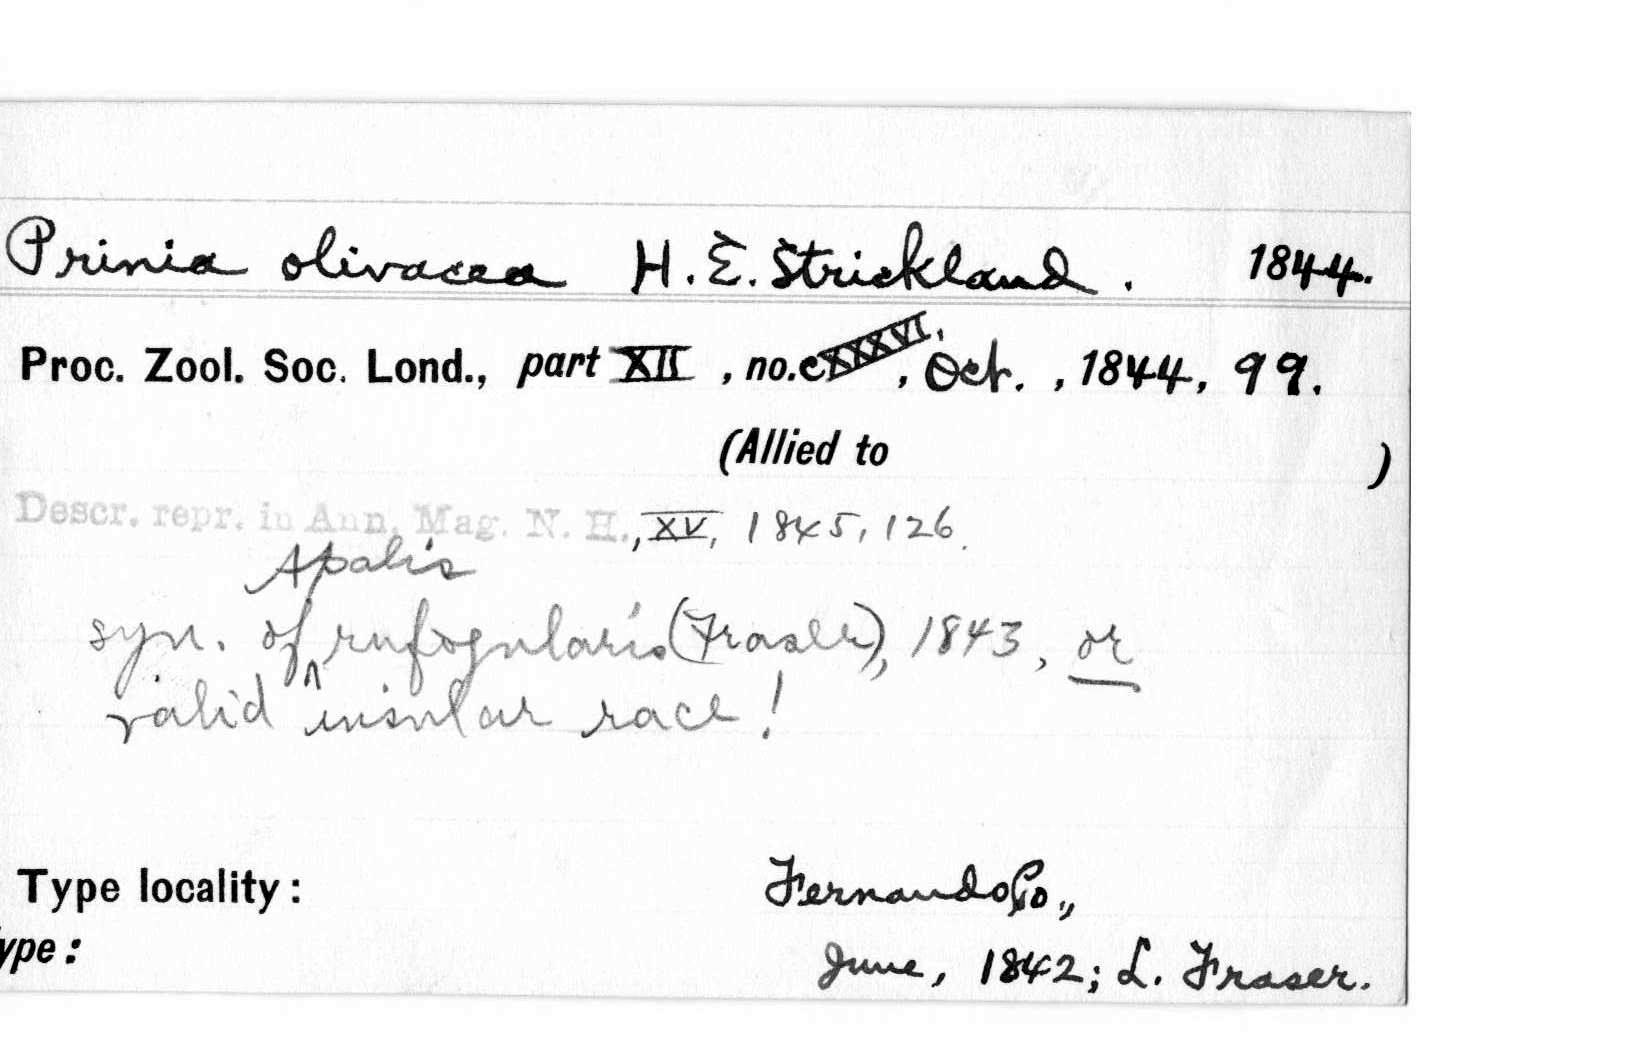 Prinia olivacea H. E. Strickland. 1844.
Proc. Zool. Soc. Lond., part XII, no. cXXXVI., Oct., 1844, 99.
(Allied to )
Descr. repr. in Ann. Mag. N. H., XV, 1845, 126.
Apalis
syn. of ^ rufogularis (Fraser), 1843, or
valid insular race!
Type locality: Fernando Po.,
ype: June, 1842; L. Fraser.